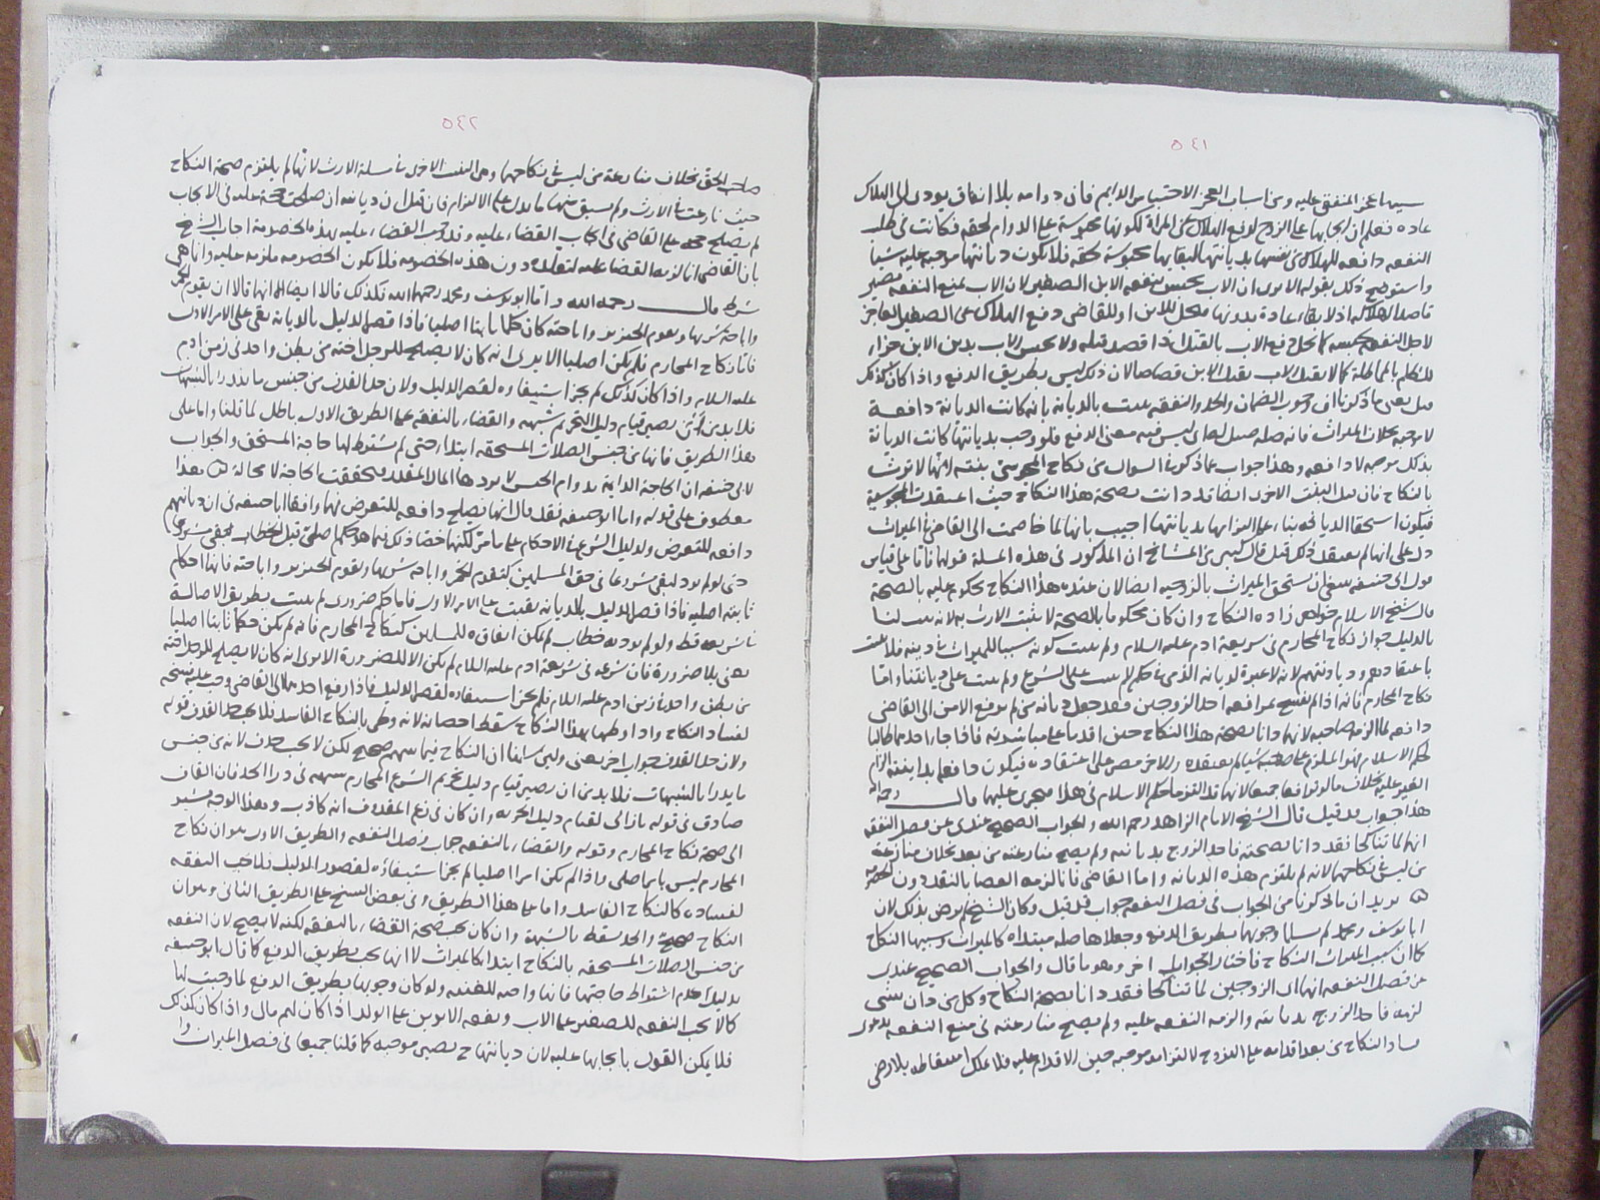 ٥٤١
سيما عجز المنفق عليه ومن اسباب العجز الاحتباس الدايم فان دوامه بلا انفاق يودى الى الهلاك
عادة فعلم ان ايجابها على الزوج لدفع الهلاك عن المرأة لكونها محبوسة على الدوام لحقه فكانت فى طلب
النفقه دافعه للهلاك عن نفسها بديانتها لبقايها محبوسة لحقه فلا يكون ديانتها موجبه عليه شيأ
واستوضح ذلك بقوله الا يرى ان الاب يحبس بنفقه الابن الصغير لان الاب بمنع النفقه يصير
قاصدا لاهلاكه اذ لا بقاء عادة بدونها فيحل للابن او للقاضى دفع الهلاك عن الصغير العاجز
لاجل النفقه بحبسه كما يحل دفع الاب بالقتل اذا قصد قتله ولا يحبس الاب بدين الابن جزاء
كما لا يقتل الاب بقتل الابن قصاصا لان ذلك ليس بطريق الدفع واذا كان كذلك
والنفقه بالديانه بانه كانت الديانة دافعة
لا موجبه بخلاف الميراث فانه صله ليس فيه معنى الدفع فلو وجب بديانتها كانت الديانة
بذلك موجبه لا دافعه وهذا جواب عما ذكر من السوال عن نكاح المجوسى بنته انها لا ترث
بالنكاح فان قيل البنت الاخرى ايضا قد دانت بصحة هذا النكاح حيث اعتقدت المجوسية
فيكون استحقاق بناء على التزامها بديانتها اجيب بانها لما خاصمت الى القاضى فى الميراث
دل على انها لم تعتقد ذلك قيل قال كثير من المشائخ ان المذكور فى هذه المسلة قولهما فاما على قياس
قول ابى حنيفه ينبغى ان يستحق الميراث بالزوجيه ايضا لان عنده هذا النكاح محكوم عليه بالصحة
قال شيخ الاسلام خواهر زاده النكاح وان كان محكوما بالصحة لا يثبت الارث به لانه يثبت لنا
بالدليل جواز نكاح المحارم فى شريعة ادم عليه السلام ولم يثبت كونه سببا للميراث فى دينه فلا يثبت
باعتقادهم وديانتهم لانه لا عبرة لديانة الذمى فى حكم لم يثبت على الشرع
نكاح المحارم فانه اذا لم يفسخ بمرافعة احد الزوجين فقد جعل ديانه من لم يرفع الامر الى القاضى
دافعه لما الزمه صاحبه لانهما دانا بصحة هذا النكاح حين اقدما على مباشرته فاذا جاء احدهما طالبا
لحكم الاسلام
بخلاف ما لو ترافعا جميعا لانهما قد التزما حكم الاسلام فى هذا فيجرى عليهما قال رحمه الله
هذا جواب قد قيل قال الشيخ الامام الزاهد رحمه الله والجواب الصحيح عندى عن فصل النفقه
انهما لما تناكحا فقد دانا بصحته فاخذ الزوج بديانته ولم يصح منازعته من بعد بخلاف منازعة
من ليس فى نكاحهما لانه لم يلتزم هذه الديانه واما القاضى فانما لزمه القضا بالتقليد دون الخصومه
يريد ان ما ذكرنا من الجواب فى فصل النفقه جواب قد قيل وكان الشيخ لم يرض بذلك لان
ابا يوسف ومحمد لم يسلما وجوبها بطريق الدفع وجعلاها صله مبتداه كالميراث وسببها النكاح
كما ان سبب الميراث النكاح فاختار الجواب اخر وهو ما قال والجواب الصحيح عندى
عن فصل النفقه انهما اى الزوجين لما تناكحا فقد دانا بصحة النكاح وكل من دان بشى
لزمه فاخذ الزوج بديانته والزمه النفقه عليه ولم يصح منازعته فى منع النفقه بدعوى
فساد النكاح من بعد اقدامه على التزوج لالتزامه موجبه حين الاقدام عليه فلا يملك اسقاطه بلا رضى
٥٤٢
صاحب الحق بخلاف منازعة من ليس فى نكاحهما وهى البنت الاخرى فى مسلة الارث لانها لم يلتزم صحة النكاح
حيث نازعت فى الارث ولم يسبق منها ما يدل على الالتزام فان قيل ان ديانته ان صلحت حجة عليه فى الايجاب
لم يصلح حجه على القاضى فى ايجاب القضاء عليه وقد وجب القضاء عليه بهذه الخصومة اجاب الشيخ
بان القاضى انما لزمه القضا عليه لتقلده دون هذه الخصومه فلا يكون الخصومه ملزمه عليه وانما هى
شرط قال رحمه الله واما ابو يوسف ومحمد رحمهما الله فكذلك قالا ايضا الا انهما قالا ان تقوم الخمر
واباحة شربها وتقوم الخنزير واباحته كان حكما ثابتا اصليا فاذا قصر الدليل بالديانة بقى على الامر الاول
فاما نكاح المحارم فلم يكن اصليا الا يرى انه كان لا يصلح للرجل اخته من بطن واحد فى زمن ادم
عليه السلام واذا كان كذلك لم يجز استبقاوه لقصر الدليل ولان حد القذف من جنس ما يدرا بالشبهات
فلا بد من ان يصير قيام دليل التحريم شبهه والقضاء بالنفقه على الطريق الاول باطل لما قلنا واما على
هذا الطريق فانها من جنس الصلات المستحقه ابتداء حتى لم يشترط لها حاجة المستحق والجواب
لابى حنيفه ان الحاجة الدايمة بدوام الحبس لا يردها المال المقدر فتحققت الحاجة لا محالة هذا
معطوف على قوله واما ابو حنيفه فقد قال انها تصلح دافعه للتعرض فهما وافقا ابا حنيفه فى ان ديانتهم
دافعه للتعرض ولدليل الشرع فى الاحكام على ما مر لكنهما خصا ذلك بما هو حكم اصلى قبل الخطاب
حتى لو لم يرد لبقى مشروعا فى حق المسلمين كتقوم الخمر واباحة شربها وتقوم الخنزير واباحته فانها احكام
ثابته اصليه فاذا قصر الدليل بالديانه بقيت على الامر الاول فاما حكم ضرورى لم يثبت بطريق الاصالة
فى شريعه قط ولو لم يرد به خطاب لم يمكن ابقاوه للمسلمين كنكاح المحارم فانه لم يكن حكما ثابتا اصليا
يعنى بلا ضرورة فان شرعه فى شريعة ادم عليه السلام لم يكن الا للضرورة الا يرى انه كان لا يصلح للرجل اخته
من بطن واحد فى زمن ادم عليه السلام فلم يجز استبقاوه لقصر الدليل فاذا رفع احدهما الى القاضى وجب عليه فسخه
لفساد النكاح واذا وطيها بهذا النكاح سقط احصانه لانه وطى بالنكاح الفاسد فلا يجب حد القذف قوله
ولان حد القذف جواب اخر يعنى ولين سلمنا ان النكاح فيما بينهم صحيح لكن لا يجب حد القذف لانه من جنس
ما يدرا بالشبهات فلا بد من ان يصير قيام دليل تحريم الشرع المحارم شبهه فى درا الحد فان القاذف
صادق فى قوله يا زانى لقيام دليل الحرمه وان كان فى زعم المقذوف انه كاذب وهذا الوجه يشير
الى صحة نكاح المحارم وقوله والقضاء بالنفقه جواب فصل النفقه والطريق الاول هو ان نكاح
المحارم ليس بامر اصلى واذا لم يكن امرا اصليا لم يجز استبقاؤه لقصور الدليل فلا يجب النفقه
لفساده كالنكاح الفاسد واما على هذا الطريق وفى بعض النسخ على الطريق الثانى وهو ان
النكاح صحيح والحد يسقط بالشبهة وان كان يجب صحة القضاء بالنفقه لكنه لا يصح لان النفقه
من جنس الصلات المستحقه بالنكاح ابتداء كالميراث لا انها تجب بطريق الدفع كما قال ابو حنيفه
بدليل عدم اشتراط حاجتها فانها واجبه للغنيه ولو كان وجوبها بطريق الدفع لما وجبت لها
كما لا يجب النفقه للصغير على الاب ونفقه الابوين على الولد اذا كان لهم مال واذا كان كذلك
فلا يمكن القول بايجابها عليه لان ديانتهما ح تصير موجبه كما قلنا جميعا فى فصل الميراث